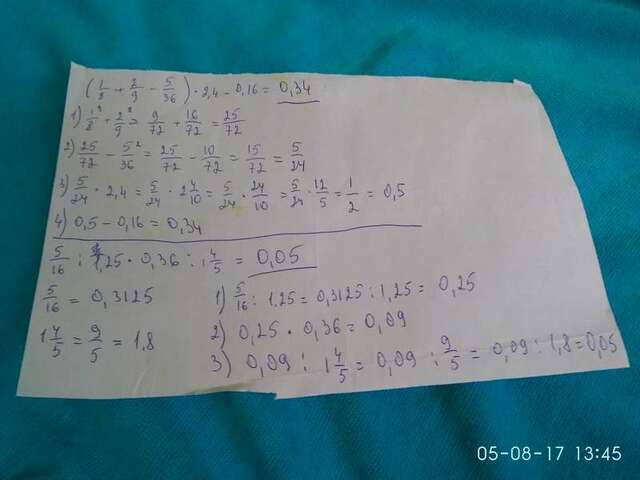 (1/8 + 2/9 - 5/36) · 2,4 - 0,16 = 0,34
1) 1/8 ⁹ + 2/9 ⁸ = 9/72 + 16/72 = 25/72
2) 25/72 - 5/36 ² = 25/72 - 10/72 = 15/72 = 5/24
3) 5/24 · 2,4 = 5/24 · 2 4/10 = 5/24 · 24/10 = 5/24 · 12/5 = 1/2 = 0,5
4) 0,5 - 0,16 = 0,34
5/16 : 1,25 · 0,36 : 1 4/5 = 0,05
5/16 = 0,3125
1 4/5 = 9/5 = 1,8
1) 5/16 : 1.25 = 0,3125 : 1,25 = 0,25
2) 0,25 · 0,36 = 0,09
3) 0,09 : 1 4/5 = 0,09 : 9/5 = 0,09 : 1,8 = 0,05
05-08-17 13:45